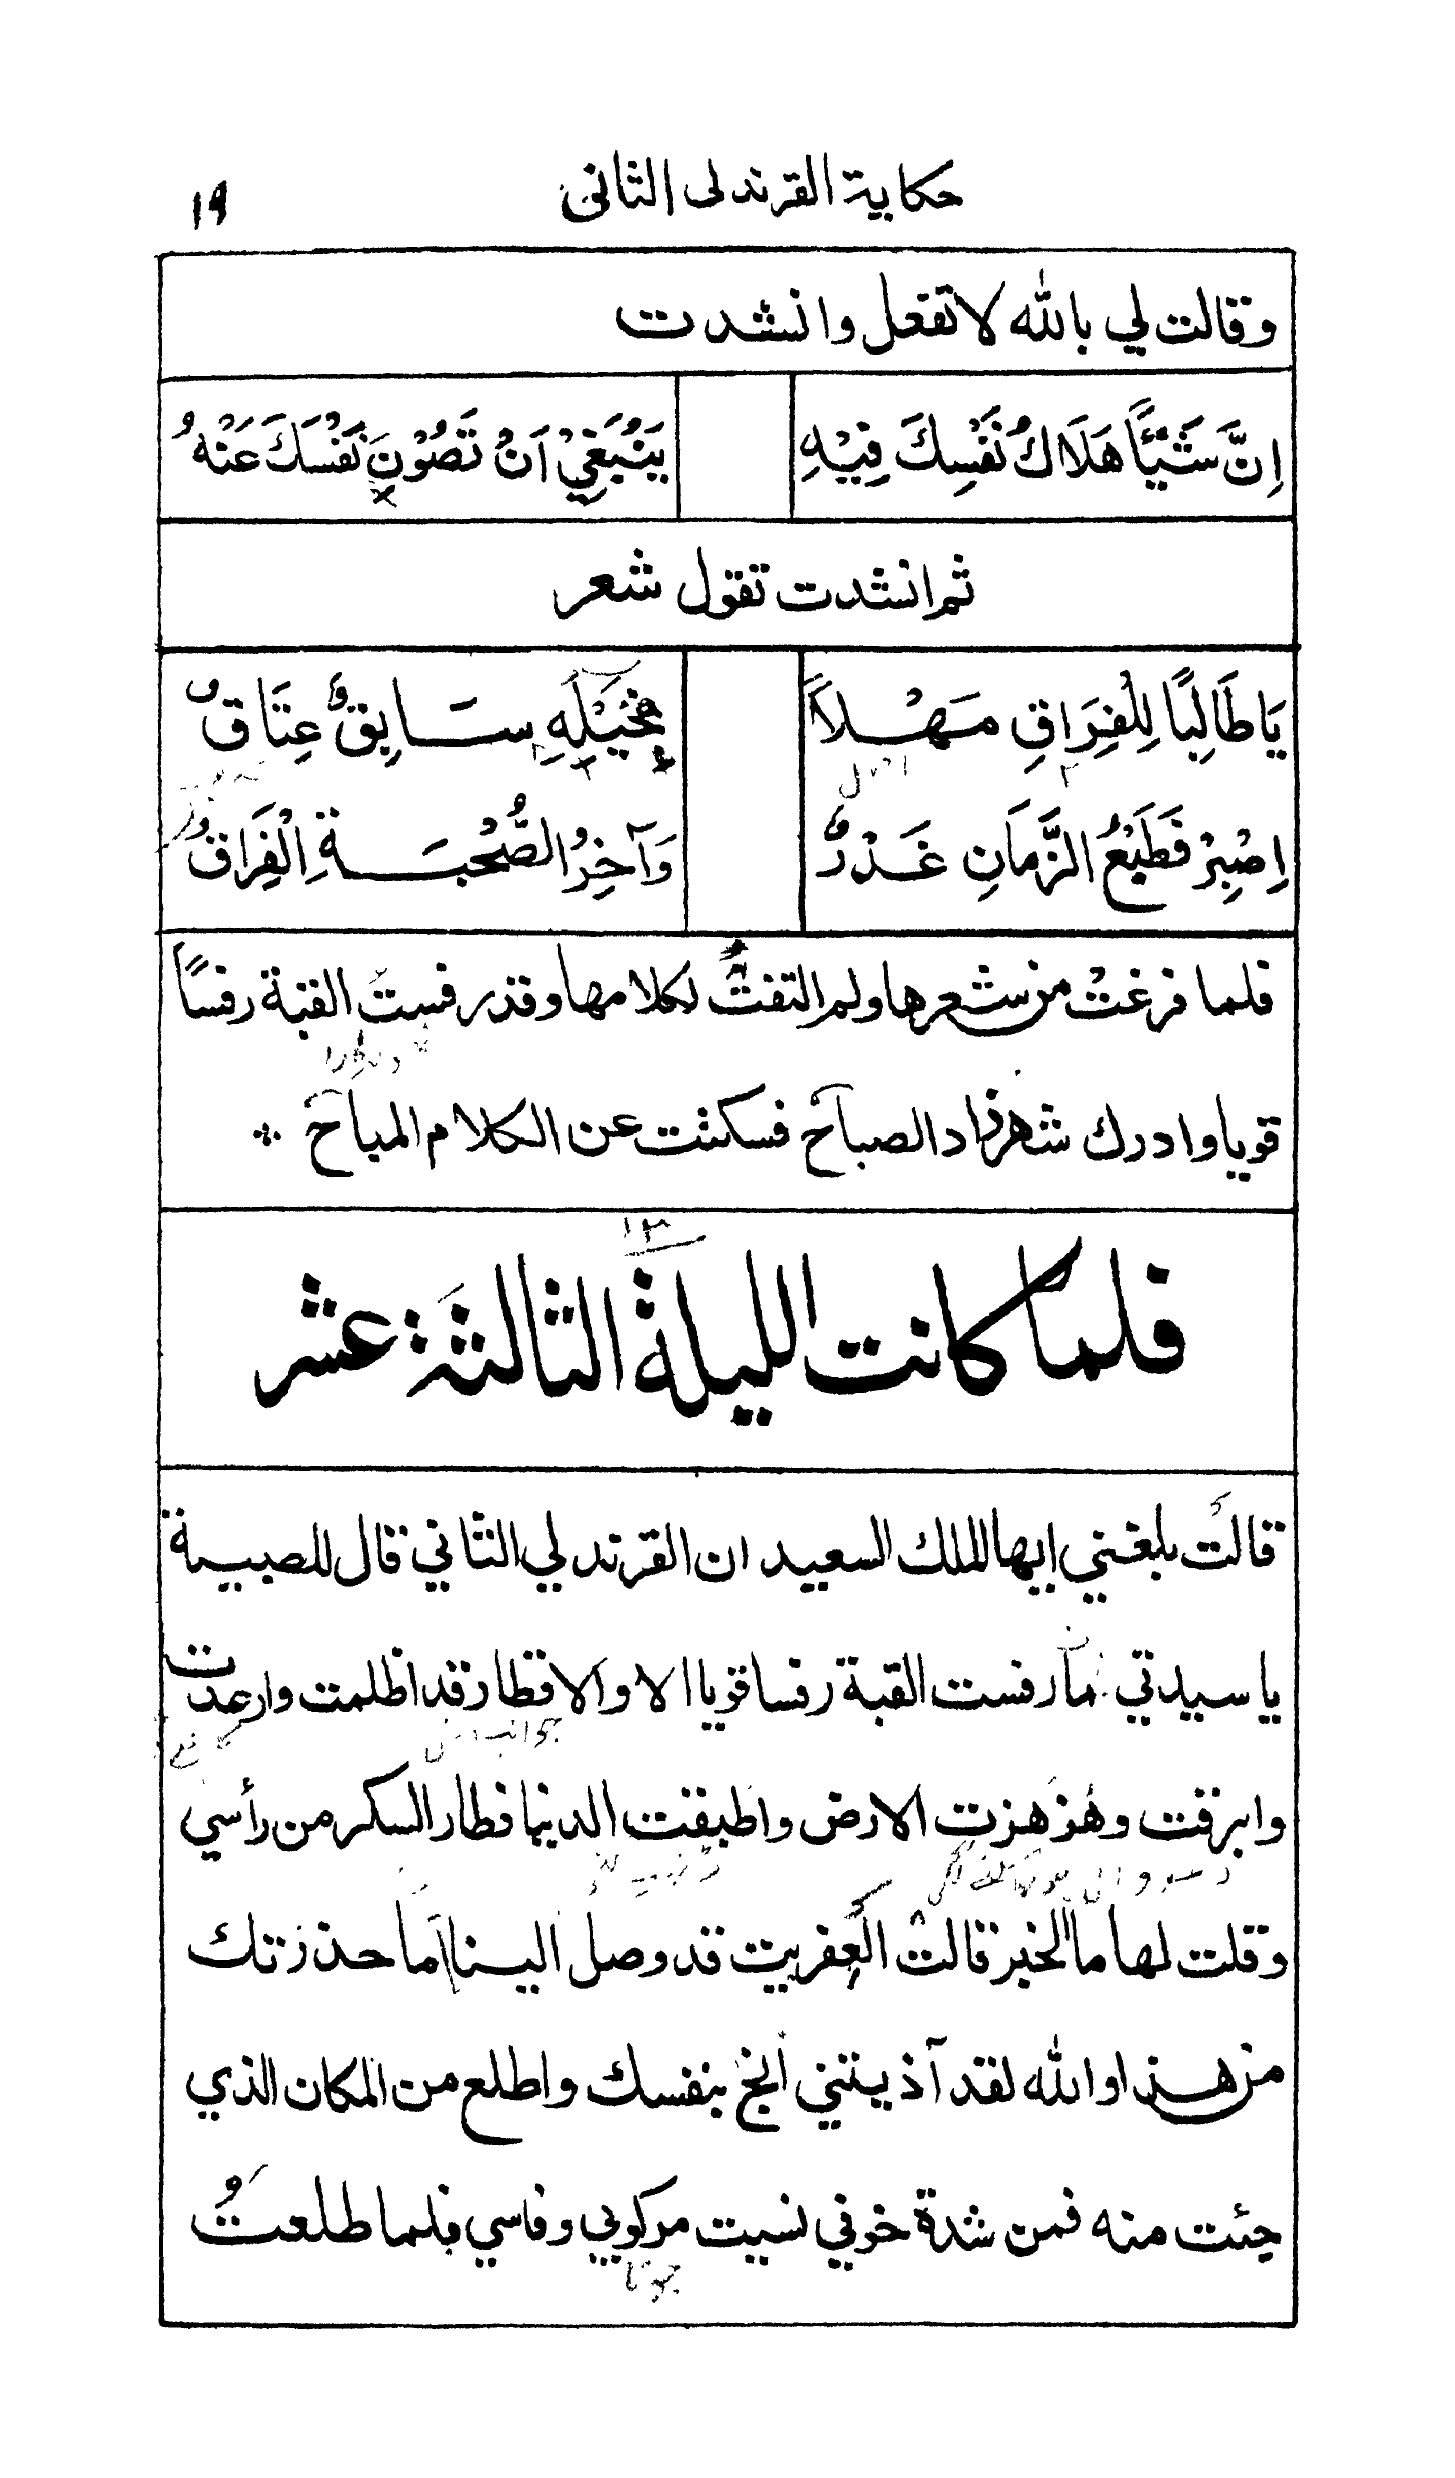 حكاية القرندلى الثانى
١٩
وقالت لي بالله لا تفعل وانشدت
اِنَّ شَيْئًا هَلَاكُ نَفْسِكَ فِيْهِ يَنْبَغِيْ اَنْ تَصُوْنَ نَفْسَكَ عَنْهُ
ثم انشدت تقول شعر
يَا طَالِبًا لِلْفِرَاقِ مَهْلًا سَابِقٌ عِتَاقٌ
اِصْبِرْ فَطَبْعُ الزَّمَانِ غَدْرٌ وَآخِرُ الصُّحْبَةِ الْفِرَاقُ
فلما فرغتْ من شعرها ولم التفتُ لكلامها وقد رفست القبة رفسًا
قويا وادرك شهرزاد الصباح فسكتت عن الكلام المباح
١٣
فلما كانت الليلة الثالثة عشر
قالت بلغني ايها الملك السعيد ان القرندلي الثاني قال للصبية
يا سيدتي ما رفست القبة رفسا قويا الا والاقطار قد اظلمت وارعدت
وابرقت وهزهزت الارض واطبقت الدنيا فطار السكر من رأسي
وقلت لها ما الخبر قالت العفريت قد وصل الينا اما حذرتك
من هذا والله لقد آذيتني انج بنفسك واطلع من المكان الذي
جئت منه فمن شدة خوفي نسيت مركوبي وفاسي فلما طلعتُ